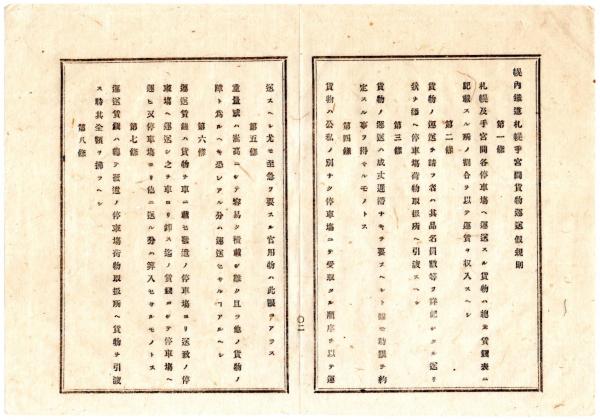 幌内鐵道札幌手宮間貨物運送假規則
第一條
札幌及手宮間各停車塲ヘ運送スル貨物ハ總テ賃錢表ニ
記載スル所ノ割合ヲ以テ運賃ヲ収入スヘシ
第二條
貨物ノ運送ヲ請フ者ハ其品名員數等ヲ詳記シタル送リ
狀ヲ添ヘ停車塲荷物取扱所ヘ引渡スヘシ
第三條
貨物ノ運送ハ成丈遲滯ナキヲ要スヘシト雖モ時限ヲ約
定スル事ヲ得サルモノトス
第四條
貨物ハ公私ノ別ナク停車塲ニテ受取タル順序ヲ以テ運
送スヘシ尤モ至急ヲ要スル官用物ハ此限ニアラス
第五條
重量或ハ嵩高ニシテ容易ク積載シ難ク且ツ他ノ貨物ノ
障ト爲ルヘキ恐レアル分ハ運送セサルコアルヘシ
第六條
運送賃錢ハ貨物ヲ車ニ載セ發途ノ停車塲ヨリ送致ノ停
車塲ヘ運送シ之ヲ車ヨリ卸ス迄ノ賃錢ニシテ停車塲ヘ
運ヒ又停車塲ヨリ他ニ送ル分ハ算入セサルモノトス
第七條
運送賃錢ハ總テ發途ノ停車塲荷物取扱所ヘ貨物ヲ引渡
ス時其全額ヲ拂フヘシ
第八條
〇二